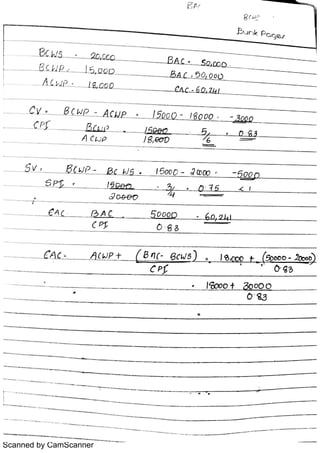 Bunk Pages
BCWS - 20,000 BAC - 50,000
BCWP - 15,000 BAC - 50,000
ACWP - 18,000 CAC - 60,241
CV = BCWP - ACWP = 15000 - 18000 = -3000
CPI = BCWP / ACWP = 15000 / 18,000 = 5/6 = 0.83
SV = BCWP - BCWS = 15000 - 20000 = -5000
SPI = 15000 / 20000 = 3/4 = 0.75 < 1
EAC = BAC / CPI = 50000 / 0.83 = 60,241
EAC = ACWP + (BAC - BCWS) / CPI = 18,000 + (50000 - 20000) / 0.83
= 18000 + 30000 / 0.83
Scanned by CamScanner